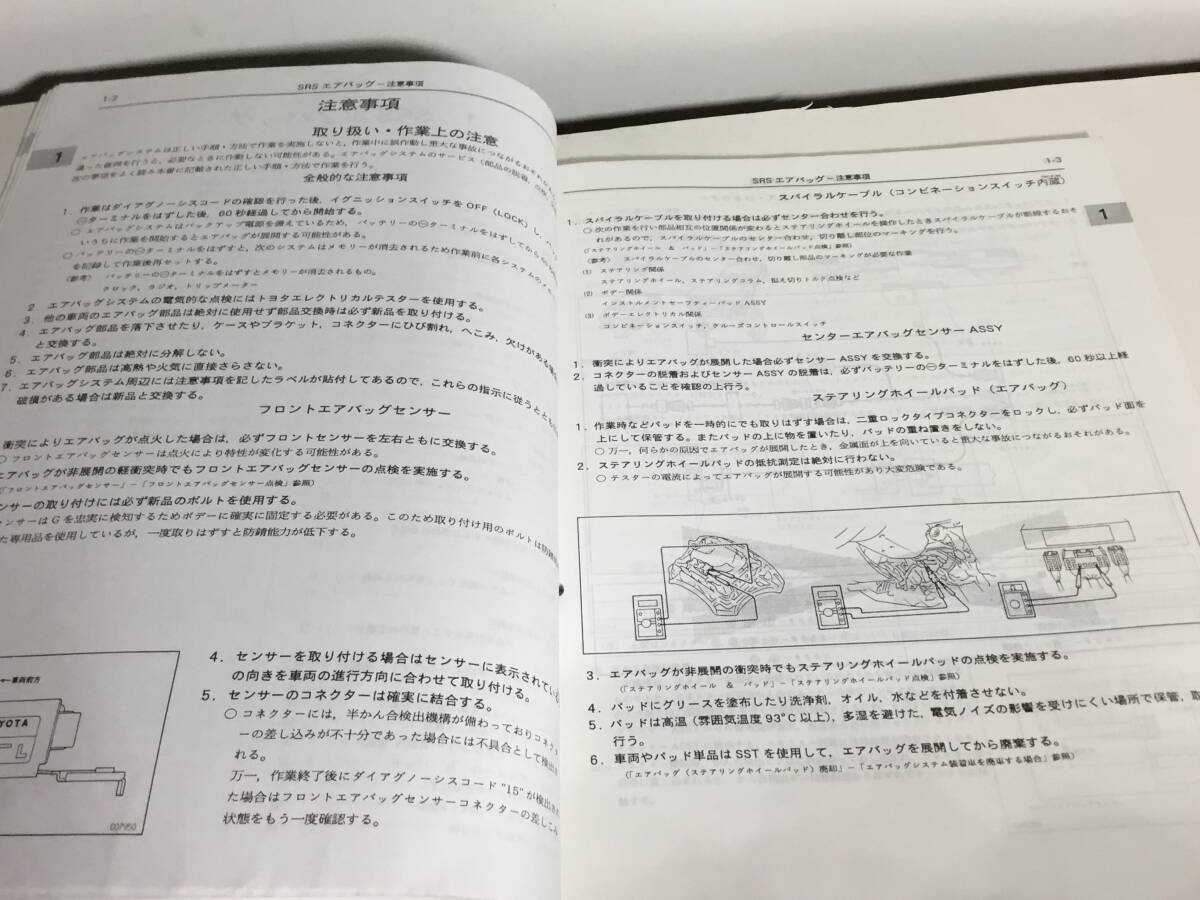 1-2
SRS エアバッグ－注意事項
注意事項
取り扱い・作業上の注意
1
エアバッグシステムは正しい手順・方法で作業を実施しないと，作業中に誤作動し重大な事故につながるおそれ
違った修理を行うと，必要なときに作動しない可能性がある。エアバッグシステムのサービス（部品の脱着，点検
次の事項をよく読み本書に記載された正しい手順・方法で作業を行う。
全般的な注意事項
1．作業はダイアグノーシスコードの確認を行った後，イグニッションスイッチを OFF（LOCK）し，
㊀ターミナルをはずした後，60 秒経過してから開始する。
○ エアバッグシステムはバックアップ電源を備えているため，バッテリーの㊀ターミナルをはずしてから
いうちに作業を開始するとエアバッグが展開する可能性がある。
○ バッテリーの㊀ターミナルをはずすと，次のシステムはメモリーが消去されるため作業前に各システムの
を記録して作業後再セットする。
（参考） バッテリーの㊀ターミナルをはずすとメモリーが消去されるもの。
クロック，ラジオ，トリップメーター
2．エアバッグシステムの電気的な点検にはトヨタエレクトリカルテスターを使用する。
3．他の車両のエアバッグ部品は絶対に使用せず部品交換時は必ず新品を取り付ける。
4．エアバッグ部品を落下させたり，ケースやブラケット，コネクターにひび割れ，へこみ，欠けがある場合
と交換する。
5．エアバッグ部品は絶対に分解しない。
6．エアバッグ部品は高熱や火気に直接さらさない。
7．エアバッグシステム周辺には注意事項を記したラベルが貼付してあるので，これらの指示に従うととも
破損がある場合は新品と交換する。
フロントエアバッグセンサー
衝突によりエアバッグが点火した場合は，必ずフロントセンサーを左右ともに交換する。
○ フロントセンサーは点火により特性が変化する可能性がある。
エアバッグが非展開の軽衝突時でもフロントエアバッグセンサーの点検を実施する。
（「フロントエアバッグセンサー」－「フロントエアバッグセンサー点検」参照）
センサーの取り付けには必ず新品のボルトを使用する。
センサーは G を忠実に検知するためボデーに確実に固定する必要がある。このため取り付け用のボルトは防錆
た専用品を使用しているが，一度取りはずすと防錆能力が低下する。
車両前方
YOTA
L
007950
4．センサーを取り付ける場合はセンサーに表示されている
の向きを車両の進行方向に合わせて取り付ける。
5．センサーのコネクターは確実に結合する。
○ コネクターには，半かん合検出機構が備わっておりコネクタ
ーの差し込みが不十分であった場合には不具合として検出さ
れる。
万一，作業終了後にダイアグノーシスコード "15" が検出され
た場合はフロントエアバッグセンサーコネクターの差しこみ
状態をもう一度確認する。
1-3
SRS エアバッグ－注意事項
1
スパイラルケーブル（コンビネーションスイッチ内蔵）
1．スパイラルケーブルを取り付ける場合は必ずセンター合わせを行う。
○ 次の作業を行い部品相互の位置関係が変わるとステアリングホイールを操作したときスパイラルケーブルが断線するおそ
れがあるので，スパイラルケーブルのセンター合わせ，切り離し部位のマーキングを行う。
（「ステアリングホイール ＆ パッド」－「ステアリングホイールパッド点検」参照）
（参考） スパイラルケーブルのセンター合わせ，切り離し部品のマーキングが必要な作業
(1) ステアリング関係
ステアリングホイール，ステアリングコラム，据え切りトルク点検など
(2) ボデー関係
インストルメントセーフティーパッド ASSY
(3) ボデーエレクトリカル関係
コンビネーションスイッチ，クルーズコントロールスイッチ
センターエアバッグセンサー ASSY
1．衝突によりエアバッグが展開した場合必ずセンサー ASSY を交換する。
2．コネクターの脱着およびセンサー ASSY の脱着は，必ずバッテリーの㊀ターミナルをはずした後，60 秒以上経
過していることを確認の上行う。
ステアリングホイールパッド（エアバッグ）
1．作業時などパッドを一時的にでも取りはずす場合は，二重ロックタイプコネクターをロックし，必ずパッド面を
上にして保管する。またパッドの上に物を置いたり，パッドの重ね置きをしない。
○ 万一，何らかの原因でエアバッグが展開したとき，金属面が上を向いていると重大な事故につながるおそれがある。
2．ステアリングホイールパッドの抵抗測定は絶対に行わない。
○ テスターの電流によってエアバッグが展開する可能性があり大変危険である。
3．エアバッグが非展開の衝突時でもステアリングホイールパッドの点検を実施する。
（「ステアリングホイール ＆ パッド」－「ステアリングホイールパッド点検」参照）
4．パッドにグリースを塗布したり洗浄剤，オイル，水などを付着させない。
5．パッドは高温（雰囲気温度 93°C 以上），多湿を避けた，電気ノイズの影響を受けにくい場所で保管，取
行う。
6．車両やパッド単品は SST を使用して，エアバッグを展開してから廃棄する。
（「エアバッグ（ステアリングホイールパッド）廃却」－「エアバッグシステム装着車を廃車する場合」参照）